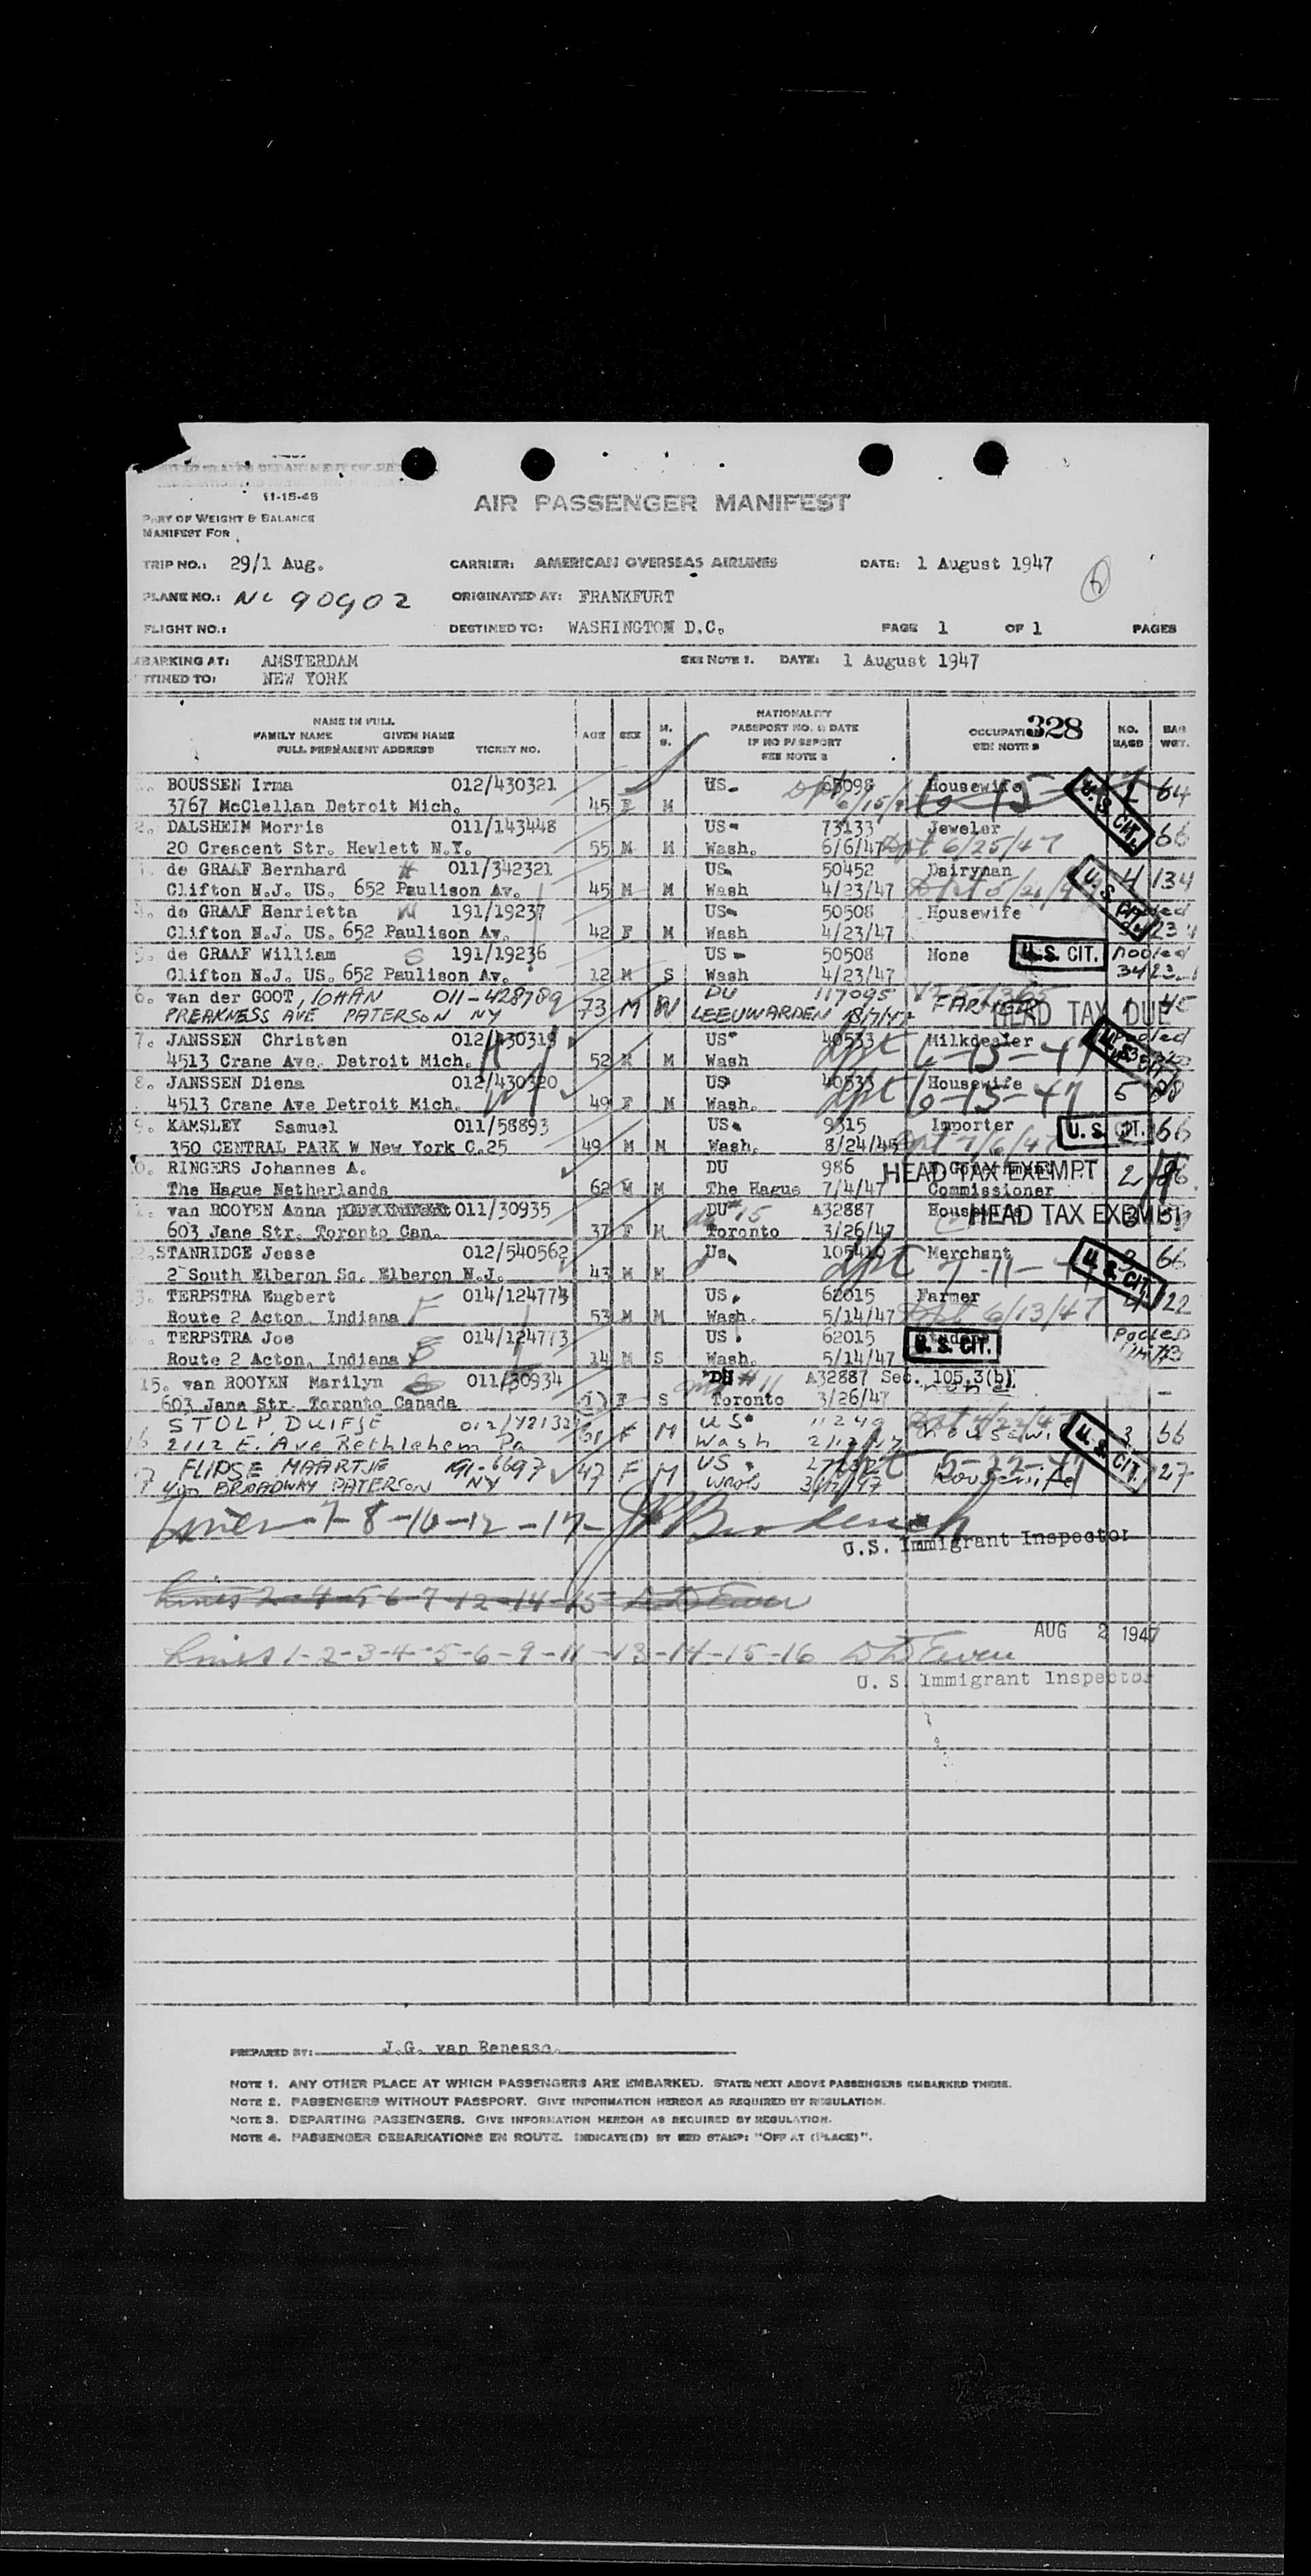 11-15-45
AIR PASSENGER MANIFEST
PART OF WEIGHT & BALANCE
MANIFEST FOR
TRIP NO.: 29/1 Aug. CARRIER: AMERICAN OVERSEAS AIRLINES DATE: 1 August 1947
PLANE NO.: NC 90902 ORIGINATED AT: FRANKFURT
FLIGHT NO.: DESTINED TO: WASHINGTON D.C. PAGE 1 OF 1 PAGES
BARKING AT: AMSTERDAM SEE NOTE 1. DATE: 1 August 1947
TINED TO: NEW YORK
NAME IN FULL
FAMILY NAME GIVEN NAME
FULL PERMANENT ADDRESS TICKET NO.
AGE SEX M. S.
NATIONALITY
PASSPORT NO. & DATE
IF NO PASSPORT
SEE NOTE 2
328
OCCUPATION
SEE NOTE 3
NO. BAGS
BAG WGT.
BOUSSEN Irma 012/430321 US. 65098 Housewife 64
3767 McClellan Detroit Mich. 45 F M U.S. CIT.
2. DALSHEIM Morris 011/143448 US 73133 Jeweler 66
20 Crescent Str. Hewlett N.Y. 55 M M Wash. 6/6/47 Dpt 6/25/47
de GRAAF Bernhard 011/342321 US. 50452 Dairyman 4 134
Clifton N.J. US. 652 Paulison Av. 45 M M Wash 4/23/47 U.S. CIT.
de GRAAF Henrietta W 191/19237 US 50508 Housewife
Clifton N.J. US. 652 Paulison Av. 42 F M Wash 4/23/47
5. de GRAAF William S 191/19236 US 50508 None U.S. CIT. pooled
Clifton N.J. US. 652 Paulison Av. 12 M S Wash 4/23/47
6. van der GOOT, IOHAN 011-428789 DU 117095
PREAKNESS AVE PATERSON NY 73 M W LEEUWARDEN FARMER HEAD TAX DUE
7. JANSSEN Christen 012/430319 US 40533 Milkdealer
4513 Crane Ave. Detroit Mich. H 52 M M Wash dpt 6-13-47 U.S. CIT.
8. JANSSEN Diena 012/430320 US 40533 Housewife 5
4513 Crane Ave Detroit Mich. W 49 F M Wash. dpt 6-13-47
9. KAMSLEY Samuel 011/58893 US. 9315 Importer U.S. CIT. 66
350 CENTRAL PARK W New York C.25 49 M M Wash. 8/24/45
RINGERS Johannes A. DU 986 HEAD TAX EXEMPT 2
The Hague Netherlands 62 M M The Hague 7/4/47 Commissioner
van ROOYEN Anna 011/30935 DU #15 A32887 Housewife HEAD TAX EXEMPT
603 Jane Str. Toronto Can. 37 F M Toronto 3/26/47
STANRIDGE Jesse 012/540562 Us. 105410 Merchant 66
2 South Elberon Sq. Elberon N.J. 43 M M dpt U.S. CIT.
TERPSTRA Engbert 014/124774 US. 62015 Farmer
Route 2 Acton. Indiana F 53 M M Wash. 5/14/47 Dpt 6/13/47
TERPSTRA Joe 014/124773 US. 62015 U.S. CIT.
Route 2 Acton. Indiana 14 M S Wash. 5/14/47
15. van ROOYEN Marilyn 011/30934 DU A32887 Sec. 105.3(b)
603 Jane Str. Toronto Canada F S Toronto 3/26/47
STOLP, DUIFJE US 11249 3 66
2112 E. Ave Bethlehem Pa F M Wash U.S. CIT.
FLIPSE MAARTJE 191-6697 US dpt 5-22-47 27
BROADWAY PATERSON NY 47 F M Housewife
Lines -7-8-10-12-17-
U.S. Immigrant Inspector
Lines 2-4-5-6-7-12-14-15
AUG 2 1947
Lines 1-2-3-4-5-6-9-11-13-14-15-16
U. S. Immigrant Inspector
PREPARED BY: J.G. van Renesse.
NOTE 1. ANY OTHER PLACE AT WHICH PASSENGERS ARE EMBARKED. STATE NEXT ABOVE PASSENGERS EMBARKED THERE.
NOTE 2. PASSENGERS WITHOUT PASSPORT. GIVE INFORMATION HEREON AS REQUIRED BY REGULATION.
NOTE 3. DEPARTING PASSENGERS. GIVE INFORMATION HEREON AS REQUIRED BY REGULATION.
NOTE 4. PASSENGER DEBARKATIONS EN ROUTE. INDICATE(D) BY RED STAMP: "OFF AT (PLACE)".